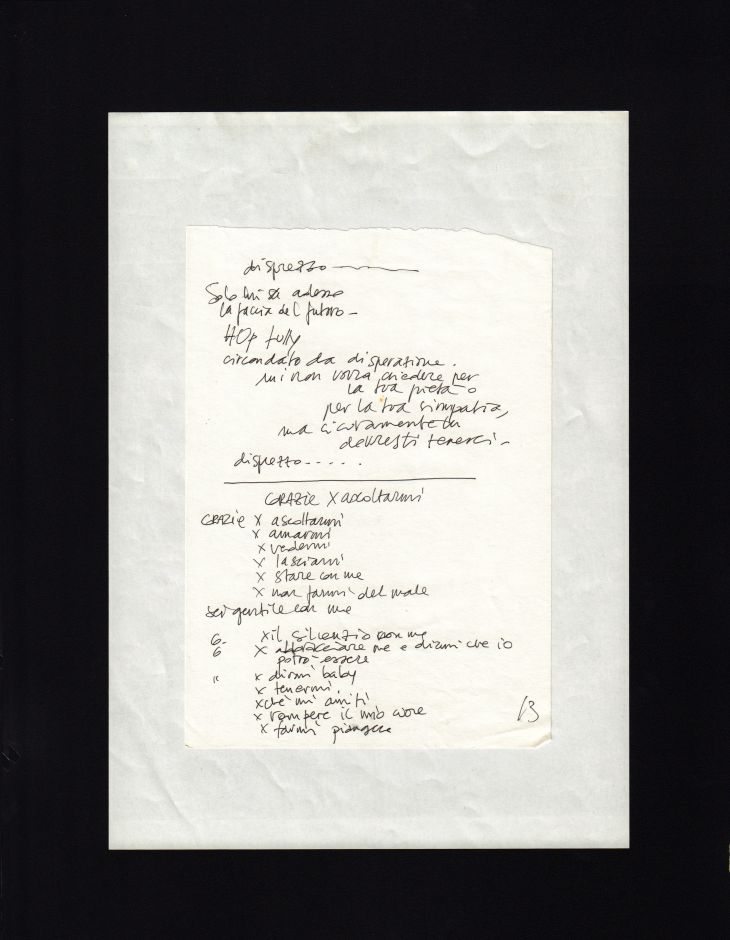 disprezzo
Solo lui sa adesso
la faccia del futuro -
HOp fully
circondato da disperazione.
mi non vorrà chiedere per
la tua pietà o
per la tua simpatia,
ma sicuramente tu
dovresti tenerci -
disprezzo.....
GRAZIE X ascoltarmi
GRAZIE X ascoltarmi
X amarmi
X vedermi
X lasciarmi
X stare con me
X non farmi del male
sei gentile con me
G. X il silenzio con me
G X abbracciare me e dirmi che io
potrò essere
" X dirmi baby
X tenermi.
X chè mi aiuti
X rompere il mio cuore
X farmi piangere
13